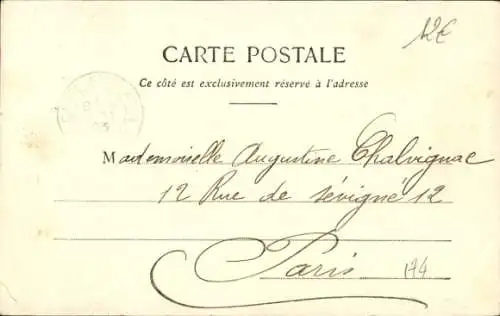 12€
CARTE POSTALE
Ce côté est exclusivement réservé à l'adresse
Mademoiselle Augustine Chalvignac
12 Rue de Sévigné 12
Paris
174